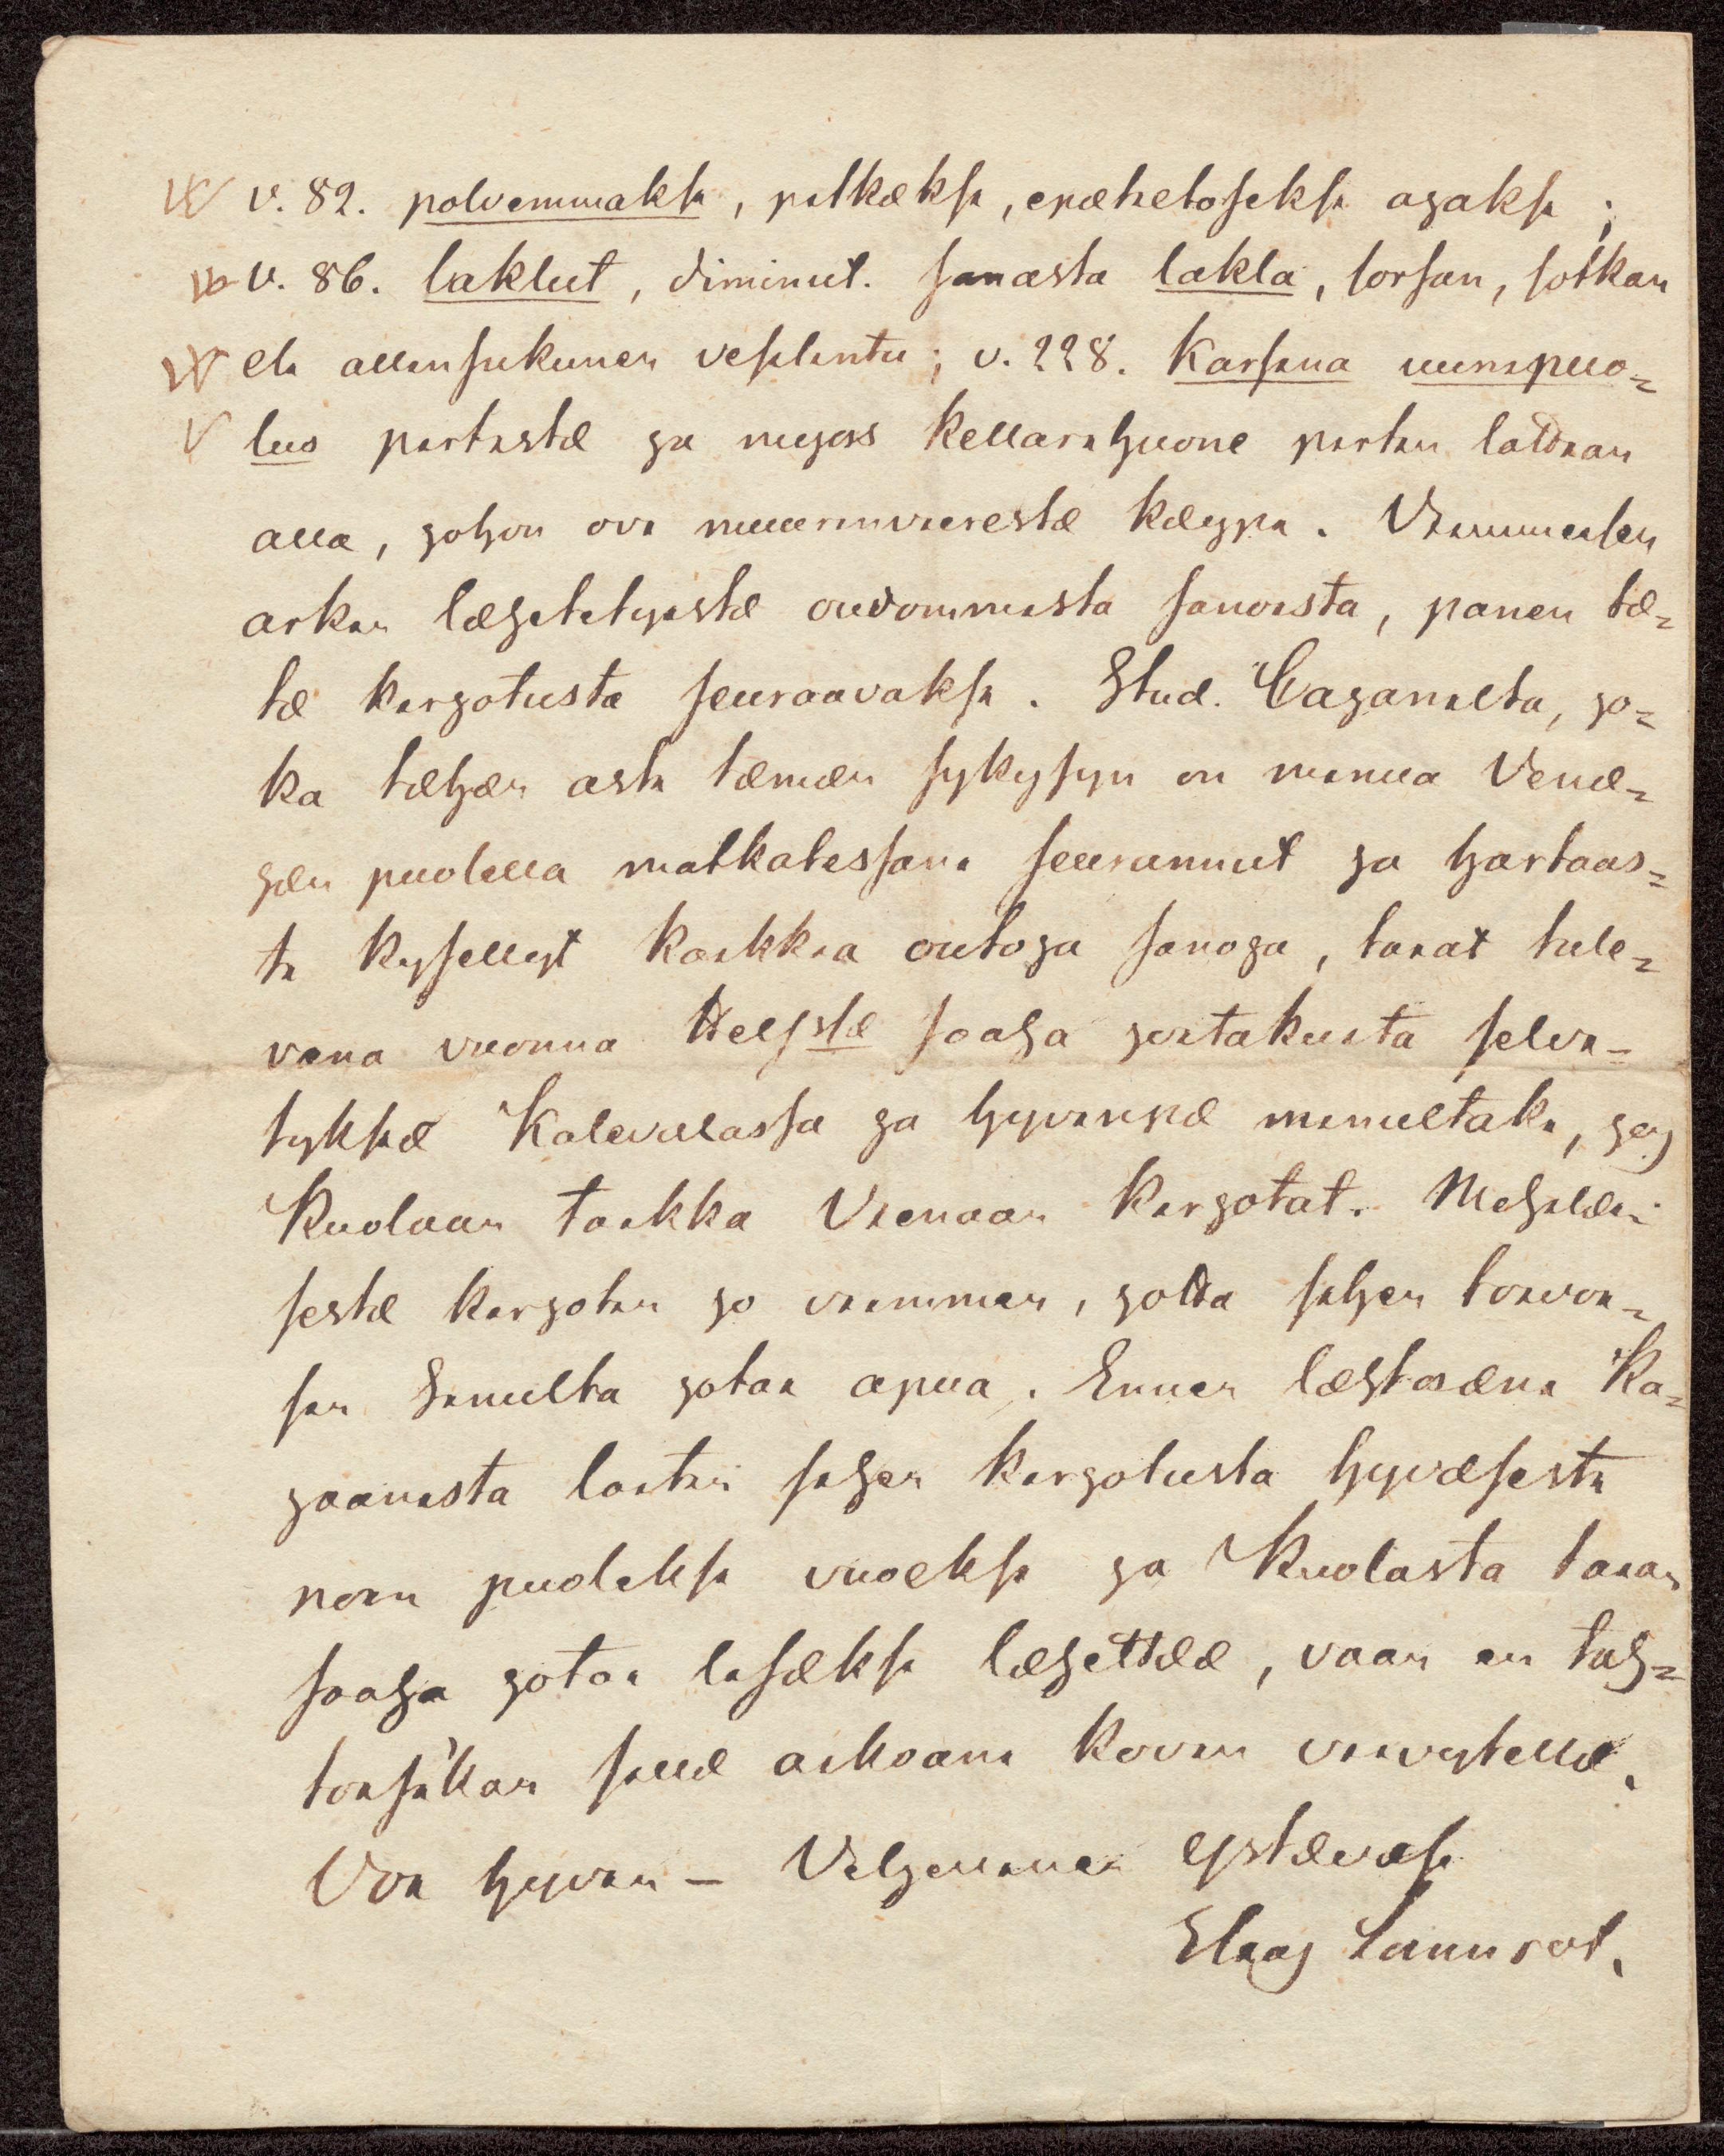 v. 82. polvemmaksi, pitkæksi, epæhetoseksi ajaksi ;
v. 86. laklut, diminut. sanasta lakla, sorsan, sotkan
eli allinsukunen vesilintu; v. 228. Karsina uunipuo=
lus pirtistæ ja myös kellarihuone pirtin lattian
alla, johon ovi muurinvierestæ kæypi. Viimmeisen
arkin læhetetyistæ oudommista sanoista, panen tæ=
tæ kirjotusta seuraavaksi. Stud. Cajanilta, jo=
ka tæhæn asti tæmæn sykysyn on minua Venæ=
jæn puolella matkatessani seurannut ja hartaas=
ti kysellyt kaikkia outoja sanoja, taiat tule=
vana vuonna Helsstæ saaha joitakuita selvi-
tyksiæ Kalevalassa ja hyvinpæ minultaki, jos
Kuolaan taikka Vienaan kirjotat. Mehilæi=
sestæ kirjotin jo viimmen, jotta siihen toivoi=
sin Sinulta jotai apua. Ennen læhtöæni Ka=
jaanista laitin siihen kirjotusta hyvæsesti
noin puoleksi vuoeksi ja Kuolasta taian
saaha jotai lisæksi læhettææ, vaan en tah=
toisikkan sillæ aikoani kovin viivytellæ.
Voi hyvin – ystævæsi
Elias Lönnrot.